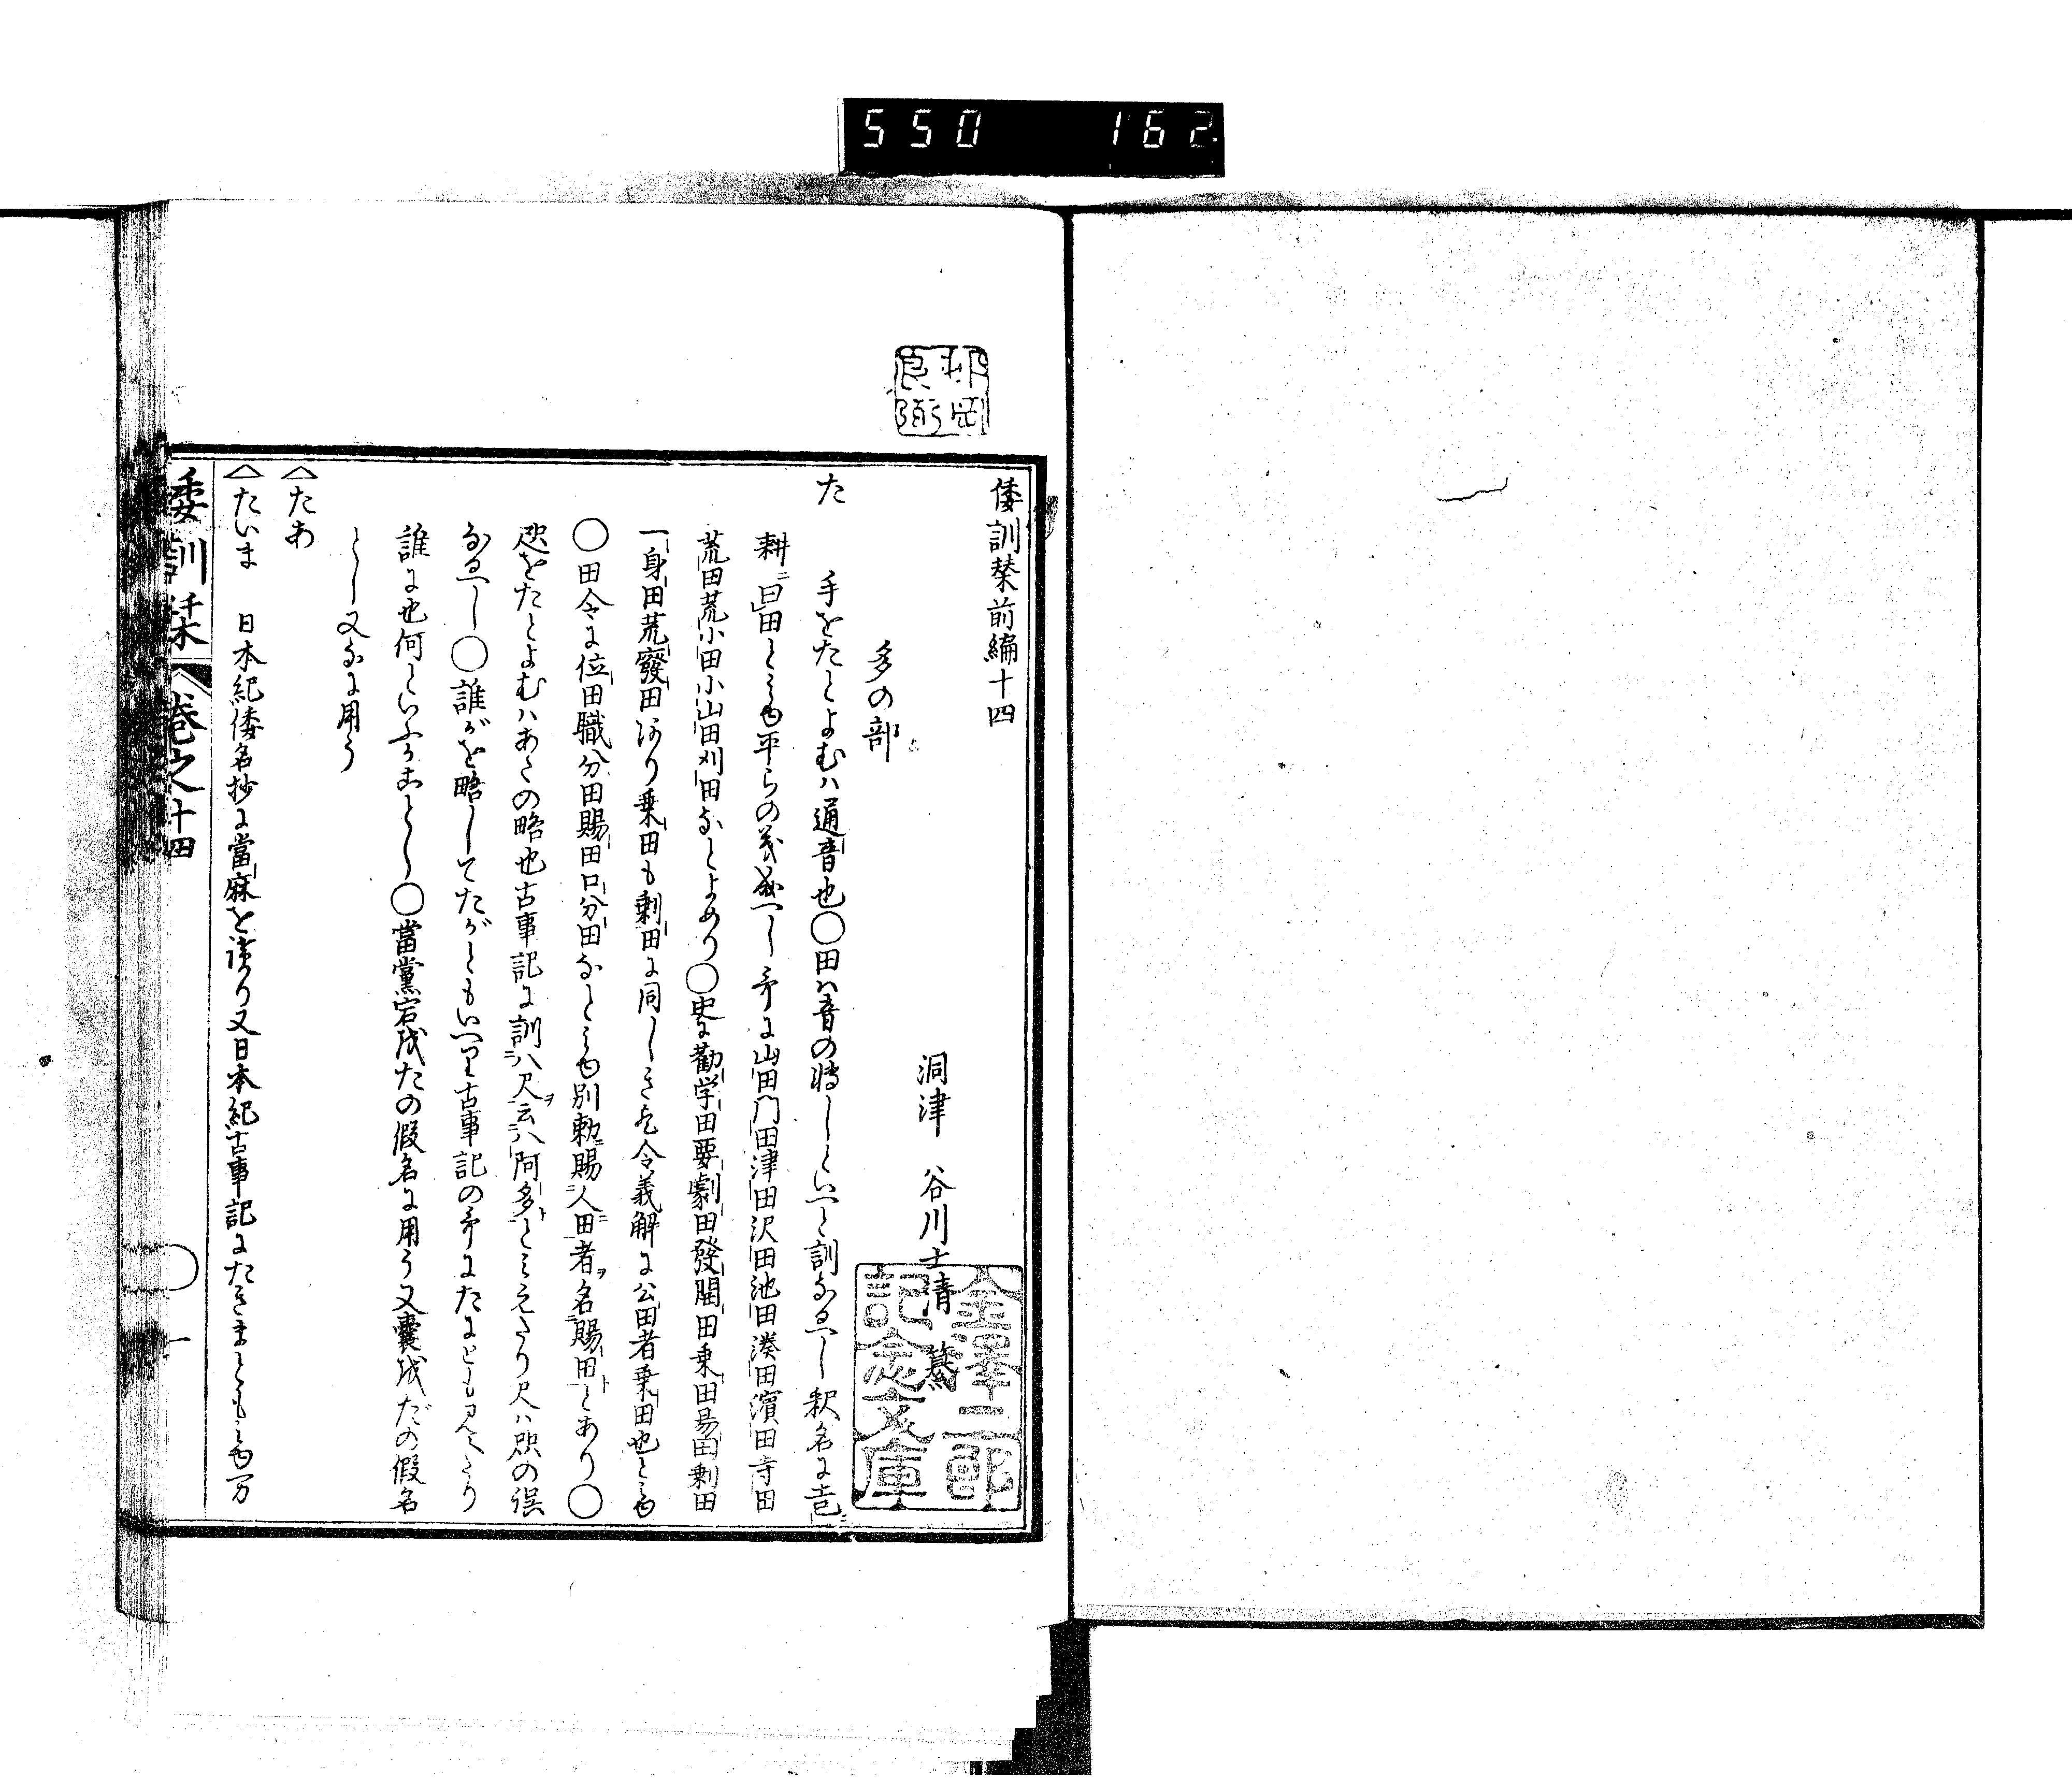 550 162
倭訓栞前編十四
洞津 谷川士清 纂
多の部
た 手をたとよむハ通音也〇田ハ音の轉しといへと訓なるへし釈名に已
耕曰田とみゆ平らの義成へし哥に山田門田津田沢田池田湊田濱田寺田
荒田荒小田小山田刈田なとよめり〇史に勸学田要劇田發開田乗田易田剰田
一身田荒廢田あり乗田も剰田に同しき也令義解に公田者乗田也とみゆ
〇田令に位田職分田賜田口分田なとみゆ別勅賜人田者名賜田とあり〇
咫をたとよむハあたの略也古事記に訓八尺云八阿多とみえたり尺ハ咫の誤
なるへし〇誰がを略してたがともいへり古事記の哥にたにともみえたり
誰に也何といふかことし〇當黨宕成たの假名に用う又嚢成だの假名
とし又なに用う
△たあ
△たいま 日本紀倭名抄に當麻を讀り又日本紀古事記にたきまともみゆ万
倭訓栞 卷之十四 一
金澤庄三郎
記念文庫